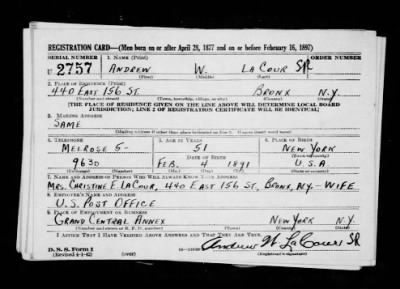 REGISTRATION CARD—(Men born on or after April 28, 1877 and on or before February 16, 1897)
SERIAL NUMBER 1. NAME (Print) ORDER NUMBER
U 2757 ANDREW W. LACOUR SR
(First) (Middle) (Last)
2. PLACE OF RESIDENCE (Print)
440 EAST 156 ST. BRONX N.Y.
(Number and street) (Town, township, village, or city) (County) (State)
[THE PLACE OF RESIDENCE GIVEN ON THE LINE ABOVE WILL DETERMINE LOCAL BOARD
JURISDICTION; LINE 2 OF REGISTRATION CERTIFICATE WILL BE IDENTICAL]
3. MAILING ADDRESS
SAME
[Mailing address if other than place indicated on line 2. If same insert word same]
4. TELEPHONE 5. AGE IN YEARS 6. PLACE OF BIRTH
MELROSE 5- 51 NEW YORK
DATE OF BIRTH (Town or county)
9630 FEB. 4 1891 U.S.A
(Exchange) (Number) (Mo.) (Day) (Yr.) (State or country)
7. NAME AND ADDRESS OF PERSON WHO WILL ALWAYS KNOW YOUR ADDRESS
MRS. CHRISTINE E. LACOUR, 440 EAST 156 ST, BRONX, N.Y. - WIFE
8. EMPLOYER'S NAME AND ADDRESS
U.S. POST OFFICE
9. PLACE OF EMPLOYMENT OR BUSINESS
GRAND CENTRAL ANNEX NEW YORK N.Y.
(Number and street or R. F. D. number) (Town) (County) (State)
I AFFIRM THAT I HAVE VERIFIED ABOVE ANSWERS AND THAT THEY ARE TRUE.
D. S. S. Form 1
(Revised 4-1-42) (over) Andrew W LaCour SR
(Registrant's signature)